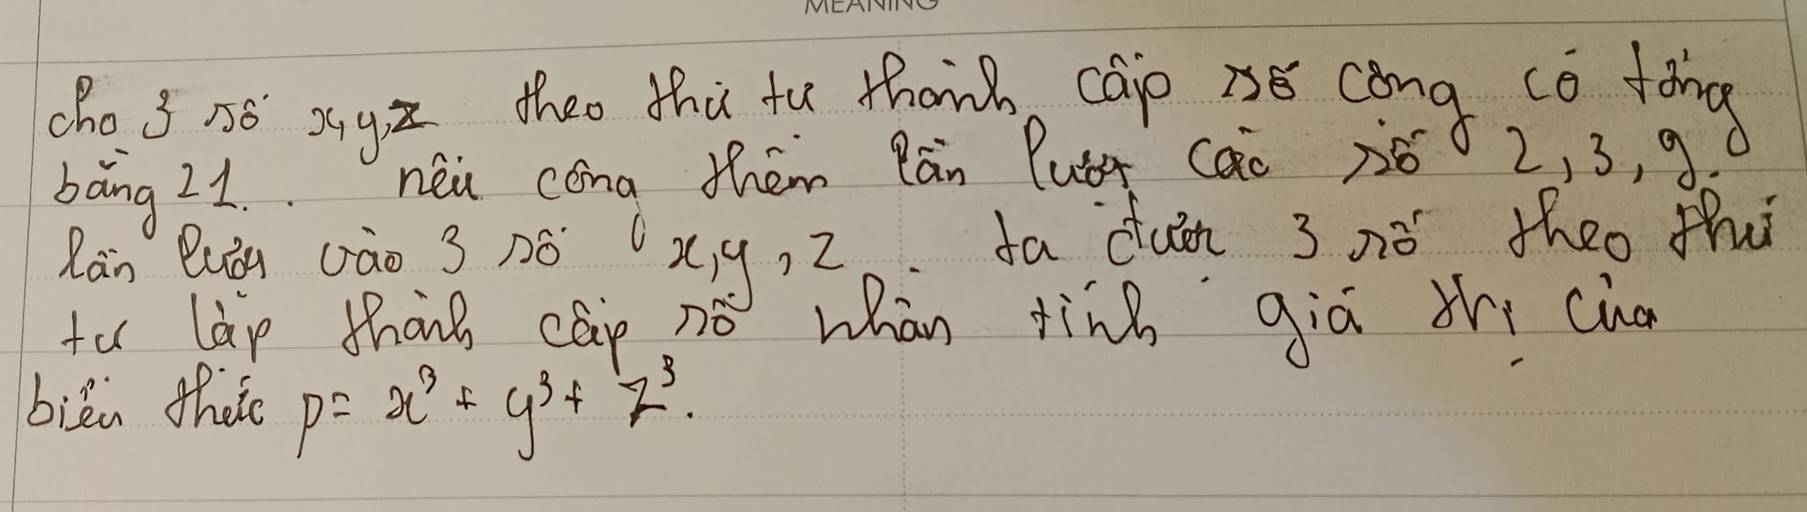 MEANING
cho 3 số x, y, z theo thứ tự thành cấp số cộng có tổng
bằng 21. . nếu cộng thêm lần lượt các số 2, 3, 9.
lần lượt vào 3 số x, y, z . ta được 3 số theo thứ
tự lập thành cấp số nhân tính giá trị của
biểu thức p = x³ + y³ + z³.